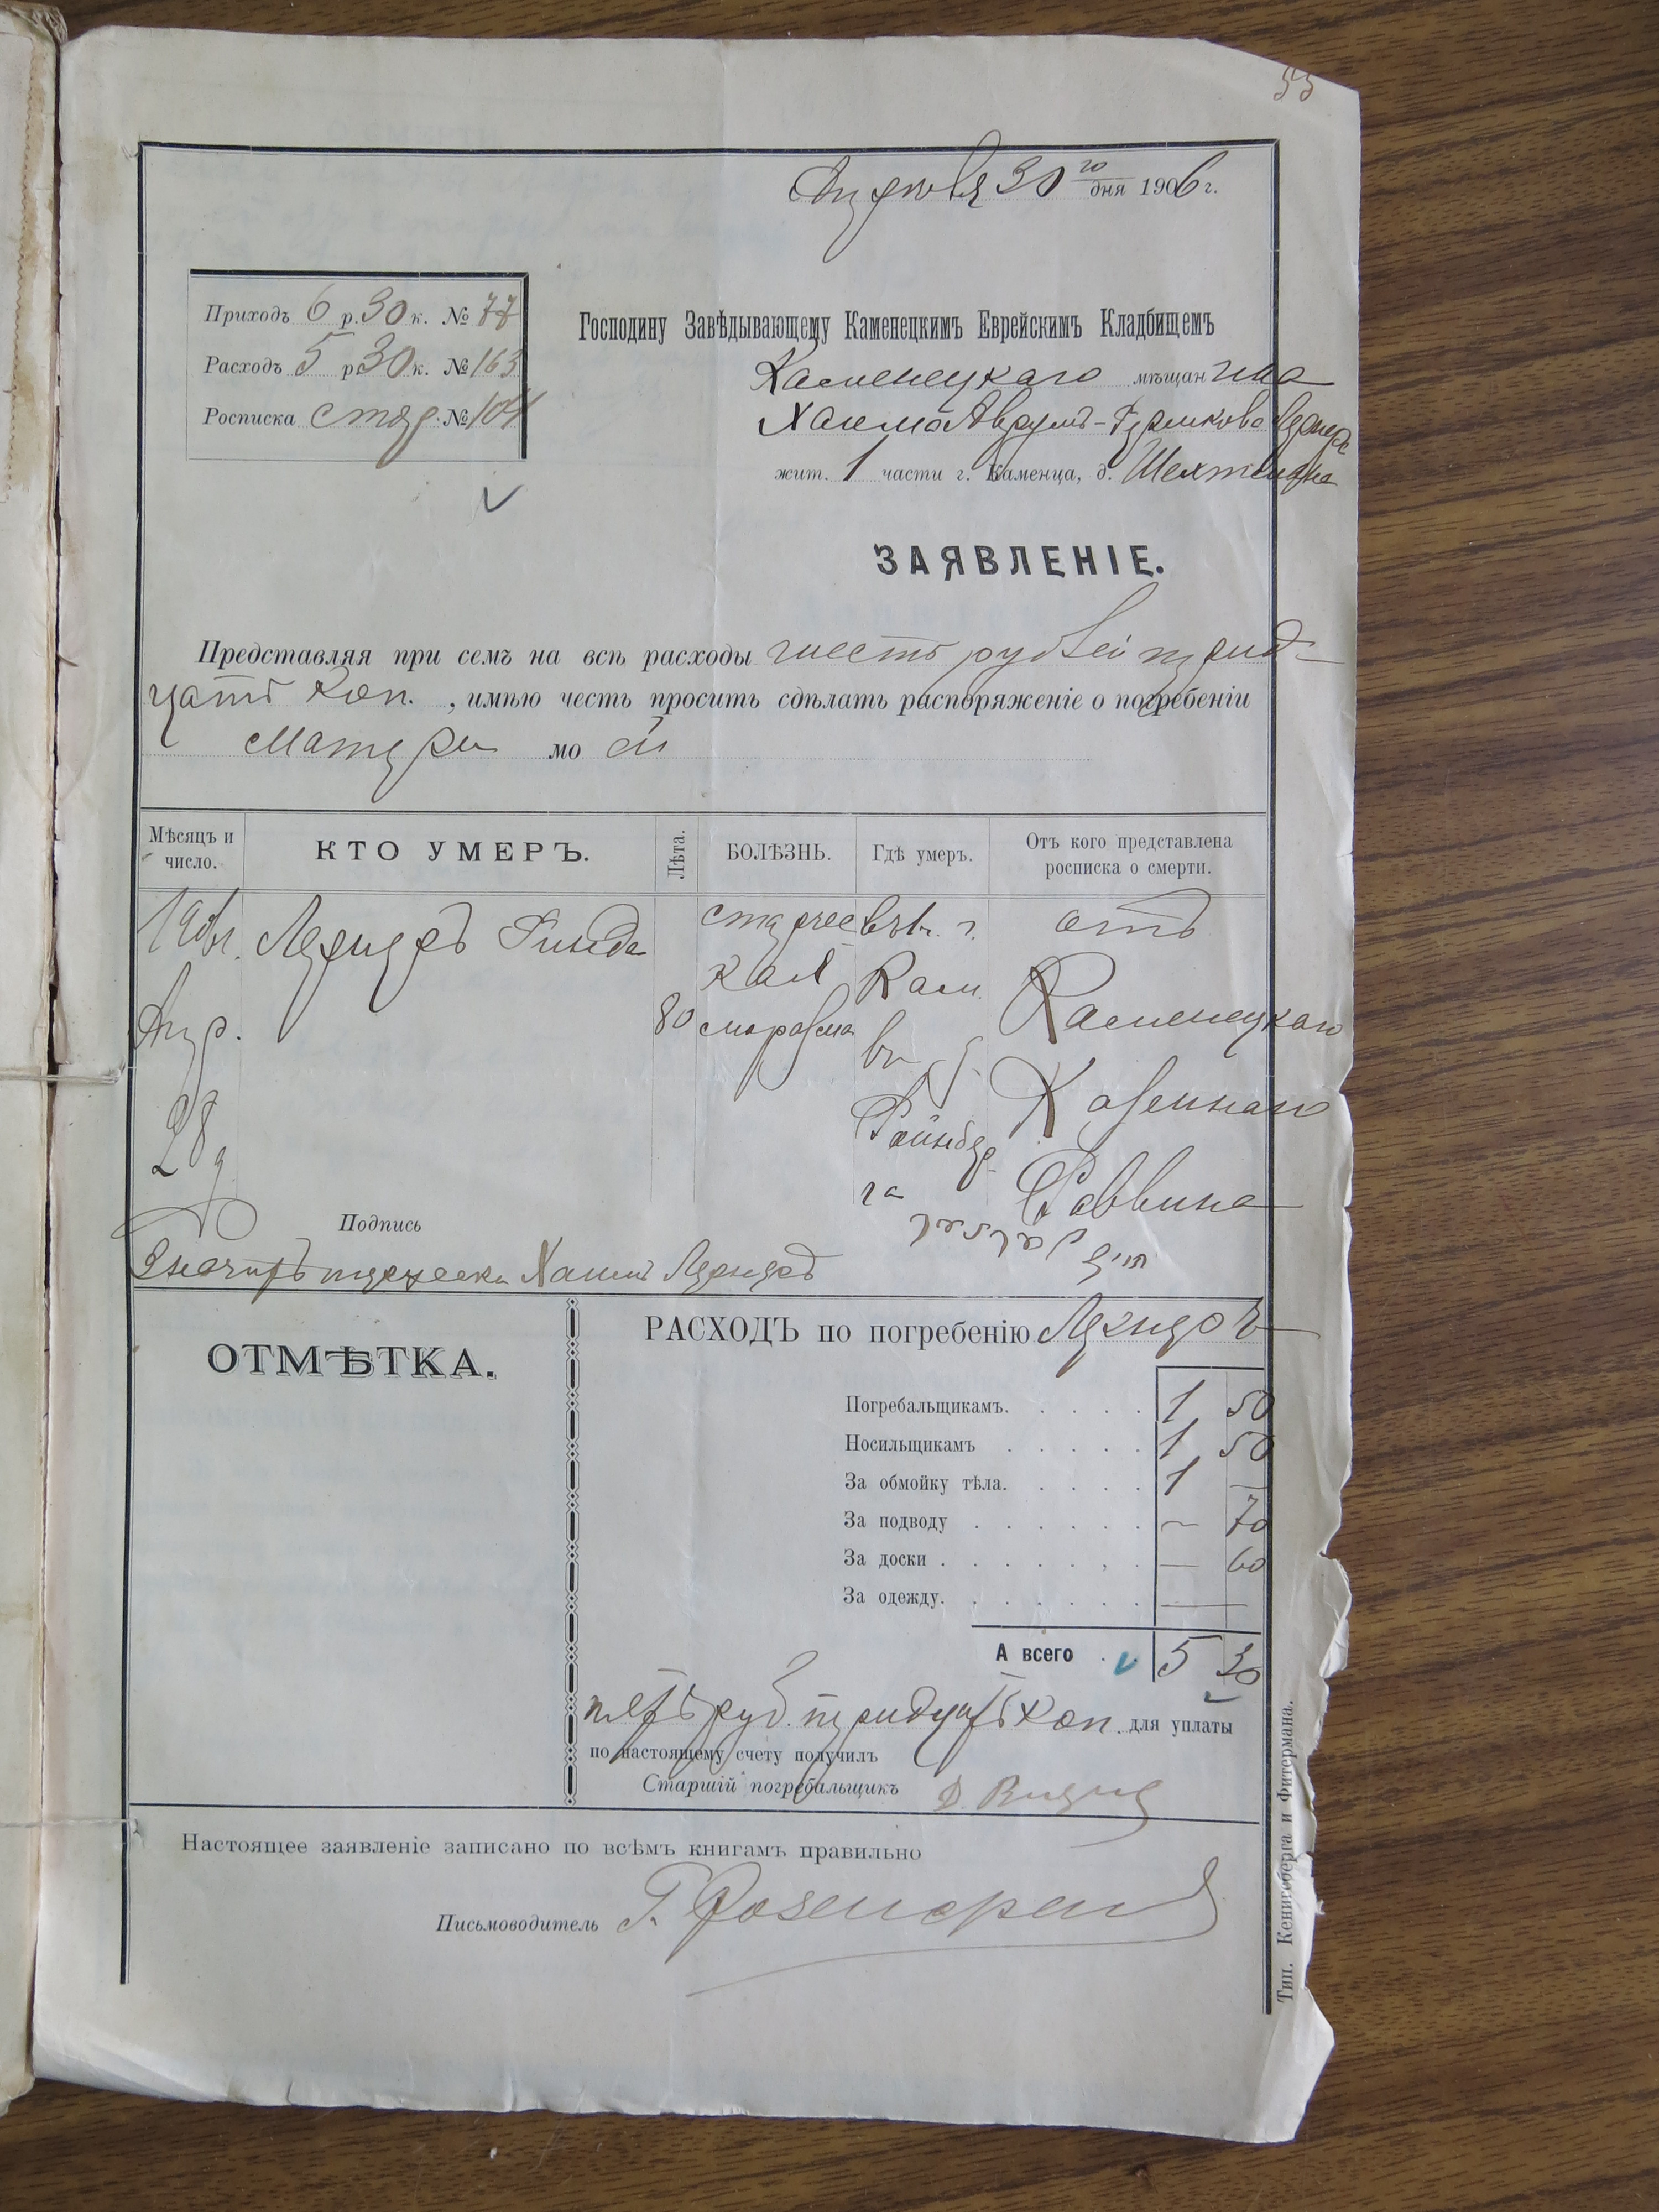 53
Апреля 30 го дня 1906 г.
Приходъ 6 р. 30 к. № 77
Расходъ 5 р 30 к. № 163
Росписка стар. № 104
Господину Завѣдывающему Каменецкимъ Еврейскимъ Кладбищемъ
Каменецкаго мѣщанина
Хаима
жит. 1 части г. Каменца, д. Шехтмана
ЗАЯВЛЕНІЕ.
Представляя при семъ на всѣ расходы шесть рублей трид-
цать коп. , имѣю честь просить сдѣлать распоряженіе о погребеніи
матери моей
Мѣсяцъ и число.
КТО УМЕРЪ.
Лѣта.
БОЛѢЗНЬ.
Гдѣ умеръ.
Отъ кого представлена росписка о смерти.
1906 г. Апр. 28 д.
Лернеръ
80
старческая маразма
въ г. Кам. въ д. Вайнбер-га
отъ Каменецкаго Казеннаго Раввина
Подпись
Хаимъ Лернеръ
ОТМѢТКА.
РАСХОДЪ по погребенію Лернеръ
Погребальщикамъ. 1 50
Носильщикамъ 1 50
За обмойку тѣла. 1 —
За подводу — 70
За доски — 60
За одежду. ——
А всего 5 30
пять руб. тридцать коп. для уплаты
по настоящему счету получилъ
Старшій погребальщикъ
Настоящее заявленіе записано по всѣмъ книгамъ правильно
Письмоводитель Г.
Тип. Кенигсберга и Фитермана.